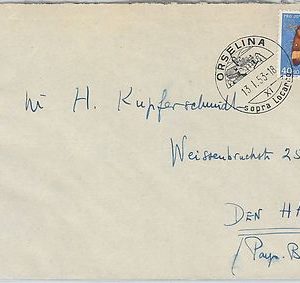 PRO JU
40
ORSELINA
13.1.53-18
XI
sopra Locarno
M H. Kupferschmidt
Weissenbruchstr 25
DEN HA
(Pays-B